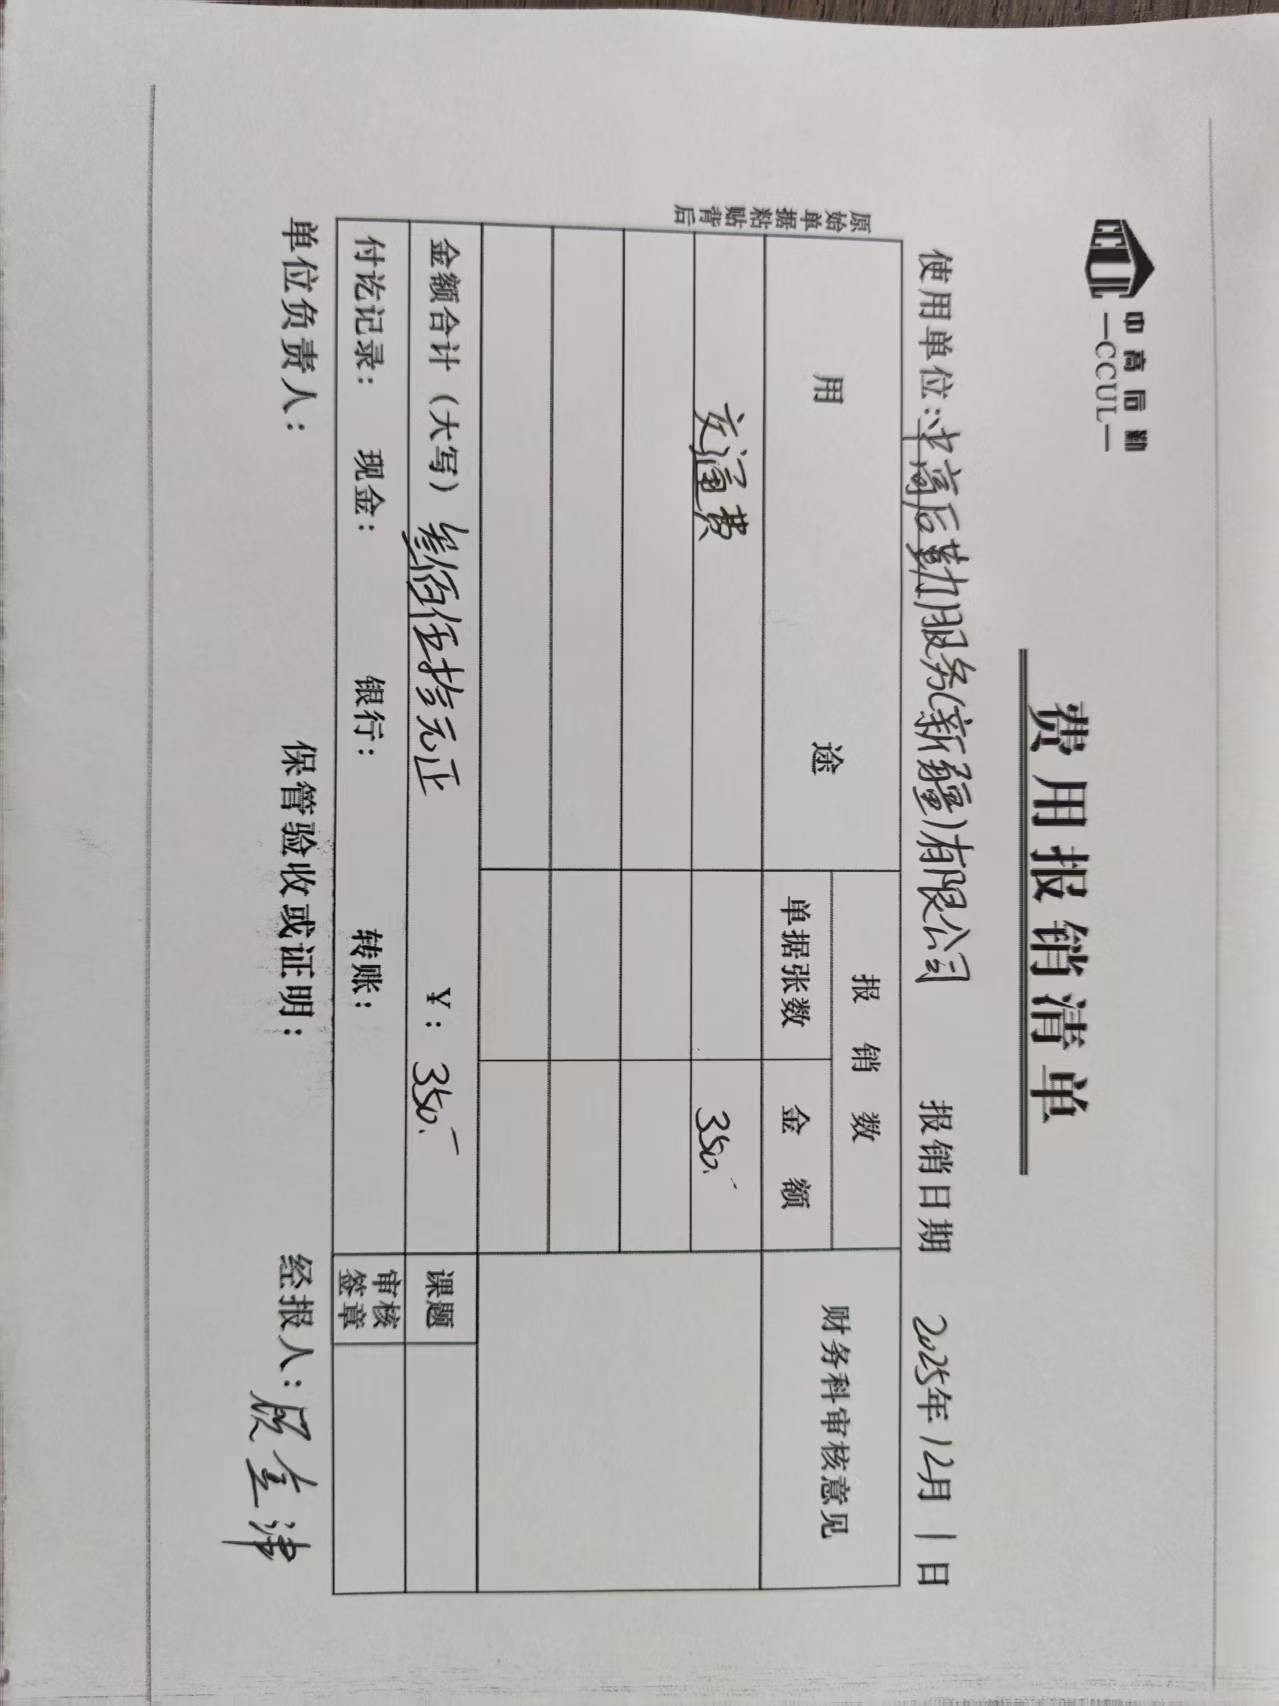 中高后勤
—CCUL—
费用报销清单
使用单位：中高后勤服务（新疆）有限公司 报销日期 2025年12月1日
原始单据粘贴背后
用途 报销数 财务科审核意见
单据张数 金额
交通费 350.-
金额合计（大写）叁佰伍拾元正 ¥：350.- 课题
付讫记录： 现金： 银行： 转账： 审核签章
单位负责人： 保管验收或证明： 经报人：